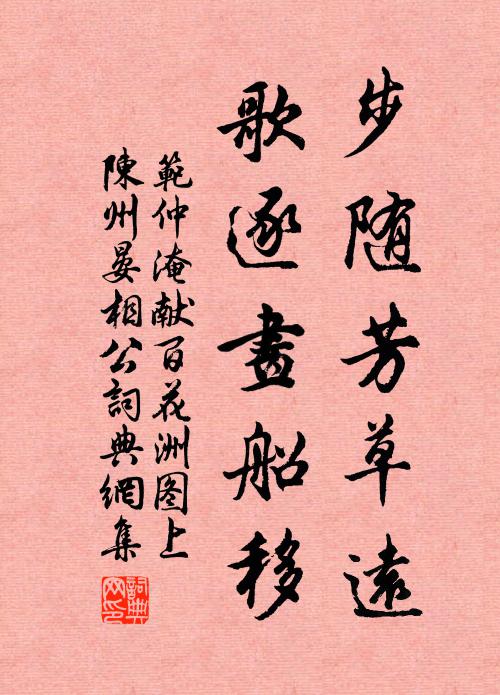 步随芳草遠
歌逐畫船移
範仲淹献百花洲图上
陳州晏相公詞典網集
詞典
网印